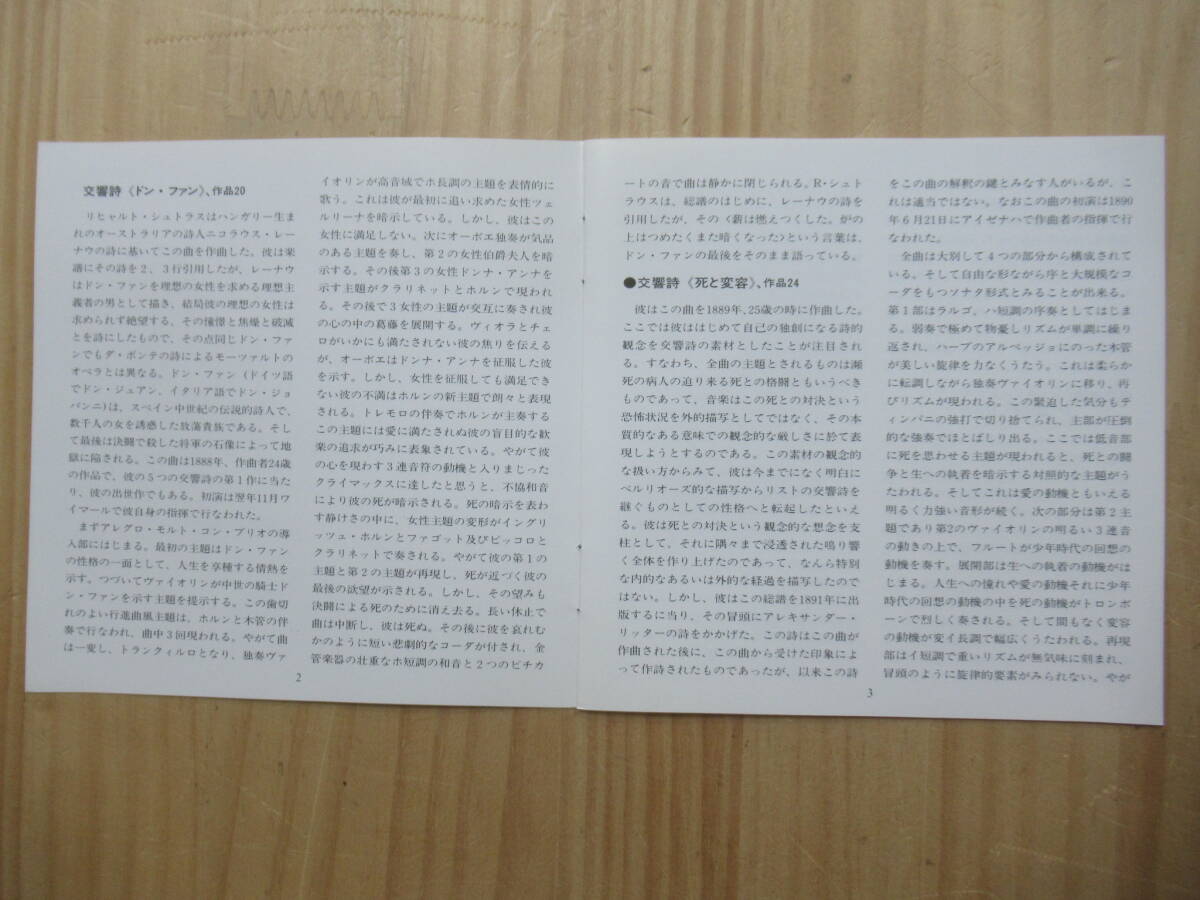 交響詩《ドン・ファン》、作品20
リヒャルト・シュトラスはハンガリー生ま
れのオーストラリアの詩人ニコラウス・レー
ナウの詩に基いてこの曲を作曲した。彼は楽
譜にその詩を2、3行引用したが、レーナウ
はドン・ファンを理想の女性を求める理想主
義者の男として描き、結局彼の理想の女性は
求められず絶望する、その憧憬と焦燥と破滅
とを詩にしたもので、その点同じドン・ファ
ンでもダ・ポンテの詩によるモーツァルトの
オペラとは異なる。ドン・ファン（ドイツ語
でドン・ジュアン、イタリア語でドン・ジョ
バンニ)は、スペイン中世紀の伝説的詩人で、
数千人の女を誘惑した放蕩貴族である。そし
て最後は決闘で殺した将軍の石像によって地
獄に陥される。この曲は1888年、作曲者24歳
の作品で、彼の5つの交響詩の第1作に当た
り、彼の出世作でもある。初演は翌年11月ワ
イマールで彼自身の指揮で行なわれた。
まずアレグロ・モルト・コン・ブリオの導
入部にはじまる。最初の主題はドン・ファン
の性格の一面として、人生を享種する情熱を
示す。つづいてヴァイオリンが中世の騎士ド
ン・ファンを示す主題を提示する。この歯切
れのよい行進曲風主題は、ホルンと木管の伴
奏で行なわれ、曲中3回現われる。やがて曲
は一変し、トランクィルロとなり、独奏ヴァ
イオリンが高音域でホ長調の主題を表情的に
歌う。これは彼が最初に追い求めた女性ツェ
ルリーナを暗示している。しかし、彼はこの
女性に満足しない。次にオーボエ独奏が気品
のある主題を奏し、第2の女性伯爵夫人を暗
示する。その後第3の女性ドンナ・アンナを
示す主題がクラリネットとホルンで現われ
る。その後で3女性の主題が交互に奏され彼
の心の中の葛藤を展開する。ヴィオラとチェ
ロがいかにも満たされない彼の焦りを伝える
が、オーボエはドンナ・アンナを征服した彼
を示す。しかし、女性を征服しても満足でき
ない彼の不満はホルンの新主題で朗々と表現
される。トレモロの伴奏でホルンが主奏する
この主題には愛に満たされぬ彼の盲目的な歓
楽の追求が巧みに表象されている。やがて彼
の心を現わす3連音符の動機と入りまじった
クライマックスに達したと思うと、不協和音
により彼の死が暗示される。死の暗示を表わ
す静けさの中に、女性主題の変形がイングリ
ッツェ・ホルンとファゴット及びピッコロと
クラリネットで奏される。やがて彼の第1の
主題と第2の主題が再現し、死が近づく彼の
最後の欲望が示される。しかし、その望みも
決闘による死のために消え去る。長い休止で
曲は中断し、彼は死ぬ。その後に彼を哀れむ
かのように短い悲劇的なコーダが付され、金
管楽器の壮重なホ短調の和音と2つのピチカ
2
ートの音で曲は静かに閉じられる。R・シュト
ラウスは、総譜のはじめに、レーナウの詩を
引用したが、その〈薪は燃えつくした。炉の
上はつめたくまた暗くなった〉という言葉は、
ドン・ファンの最後をそのまま語っている。
●交響詩《死と変容》、作品24
彼はこの曲を1889年、25歳の時に作曲した。
ここでは彼ははじめて自己の独創になる詩的
観念を交響詩の素材としたことが注目され
る。すなわち、全曲の主題とされるものは瀕
死の病人の迫り来る死との格闘ともいうべき
ものであって、音楽はこの死との対決という
恐怖状況を外的描写としてではなく、その本
質的なある意味での観念的な厳しさに於て表
現しようとするのである。この素材の観念的
な扱い方からみて、彼は今までになく明白に
ベルリオーズ的な描写からリストの交響詩を
継ぐものとしての性格へと転起したといえ
る。彼は死との対決という観念的な想念を支
柱として、それに隅々まで浸透された鳴り響
く全体を作り上げたのであって、なんら特別
な内的なあるいは外的な経過を描写したので
はない。しかし、彼はこの総譜を1891年に出
版するに当り、その冒頭にアレキサンダー・
リッターの詩をかかげた。この詩はこの曲が
作曲された後に、この曲から受けた印象によ
って作詩されたものであったが、以来この詩
をこの曲の解釈の鍵とみなす人がいるが、こ
れは適当ではない。なおこの曲の初演は1890
年6月21日にアイゼナハで作曲者の指揮で行
なわれた。
全曲は大別して4つの部分から構成されて
いる。そして自由な形ながら序と大規模なコ
ーダをもつソナタ形式とみることが出来る。
第1部はラルゴ、ハ短調の序奏としてはじま
る。弱奏で極めて物憂しリズムが単調に繰り
返され、ハープのアルペッジョにのった木管
が美しい旋律を力なくうたう。これは柔らか
に転調しながら独奏ヴァイオリンに移り、再
びリズムが現われる。この緊迫した気分もテ
ィンパニの強打で切り捨てられ、主部が圧倒
的な強奏でほとばしり出る。ここでは低音部
に死を思わせる主題が現われると、死との闘
争と生への執着を暗示する対照的な主題がう
たわれる。そしてこれは愛の動機ともいえる
明るく力強い音形が続く。次の部分は第2主
題であり第2のヴァイオリンの明るい3連音
の動きの上で、フルートが少年時代の回想の
動機を奏す。展開部は生への執着の動機がは
じまる。人生への憧れや愛の動機それに少年
時代の回想の動機の中を死の動機がトロンボ
ーンで烈しく奏される。そして間もなく変容
の動機が変イ長調で幅広くうたわれる。再現
部はイ短調で重いリズムが無気味に刻まれ、
冒頭のように旋律的要素がみられない。やが
3